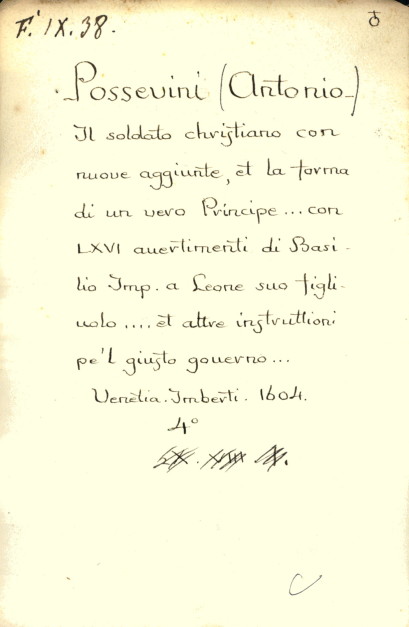 F. IX. 38.
Possevini (Antonio)
Il soldato christiano con
nuove aggiunte, et la forma
di un vero Principe... con
LXVI avertimenti di Basi-
lio Imp. a Leone suo figli-
uolo .... et altre instruttioni
pe'l giusto governo...
Venetia. Imberti. 1604.
4º